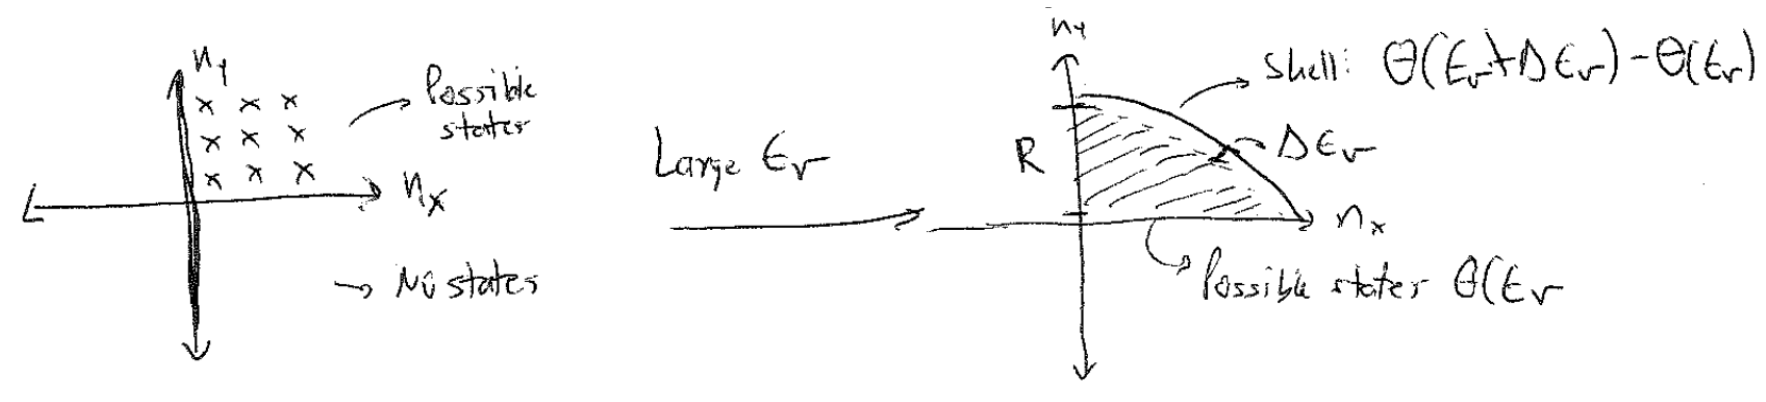 n_y
Possible
states
n_x
→ No states
Large ϵ_r
n_y
Shell: Θ(ϵ_r+Δϵ_r)-Θ(ϵ_r)
R
Δϵ_r
n_x
Possible states Θ(ϵ_r